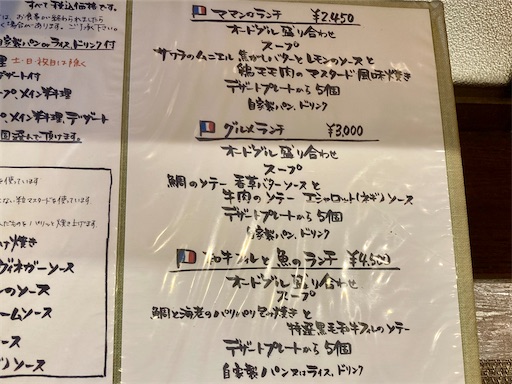 すべて税込価格です。
自家製パンorライス、ドリンク付
土・日・祝日は除く
デザート付
メイン料理
メイン料理、デザート
焼き
ソース
のソース
ームソース
ソース
ソース
ママンのランチ ¥2,450
オードブル盛り合わせ
スープ
サワラのムニエル 焦がしバターとレモンのソースと
鶏モモ肉のマスタード風味焼き
デザートプレートから5個
自家製パン、ドリンク
グルメランチ ¥3,000
オードブル盛り合わせ
スープ
鯛のソテー 香草バターソースと
牛肉のソテー エシャロット(ネギ)ソース
デザートプレートから5個
自家製パン、ドリンク
和牛フィレと魚のランチ ¥4,500
オードブル盛り合わせ
スープ
鯛と海老のパリパリ包み焼きと
特産黒毛和牛フィレのソテー
デザートプレートから5個
自家製パン又はライス、ドリンク